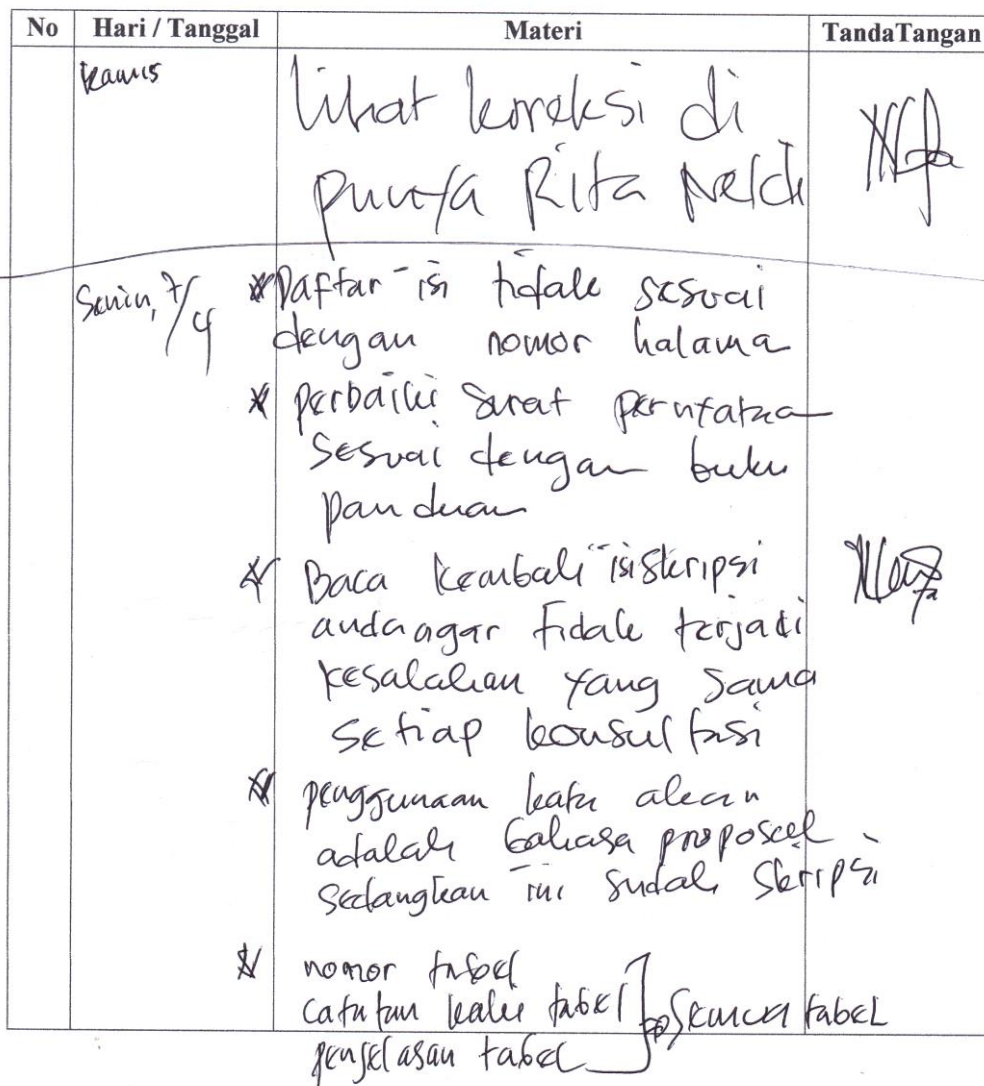 No Hari / Tanggal Materi TandaTangan
Kamis
lihat koreksi di
punya Rita Neldi
Senin, 7/4
Daftar isi tidak sesuai
dengan nomor halama
perbaiki Surat pernyataa
Sesuai dengan buku
panduan
Baca kembali isi skripsi
anda agar tidak terjadi
kesalahan yang sama
Setiap konsultasi
penggunaan kata akan
adalah bahasa proposal
sedangkan ini sudah Skripsi
nomor tabel
catatan kaki tabel Semua tabel
penjelasan tabel